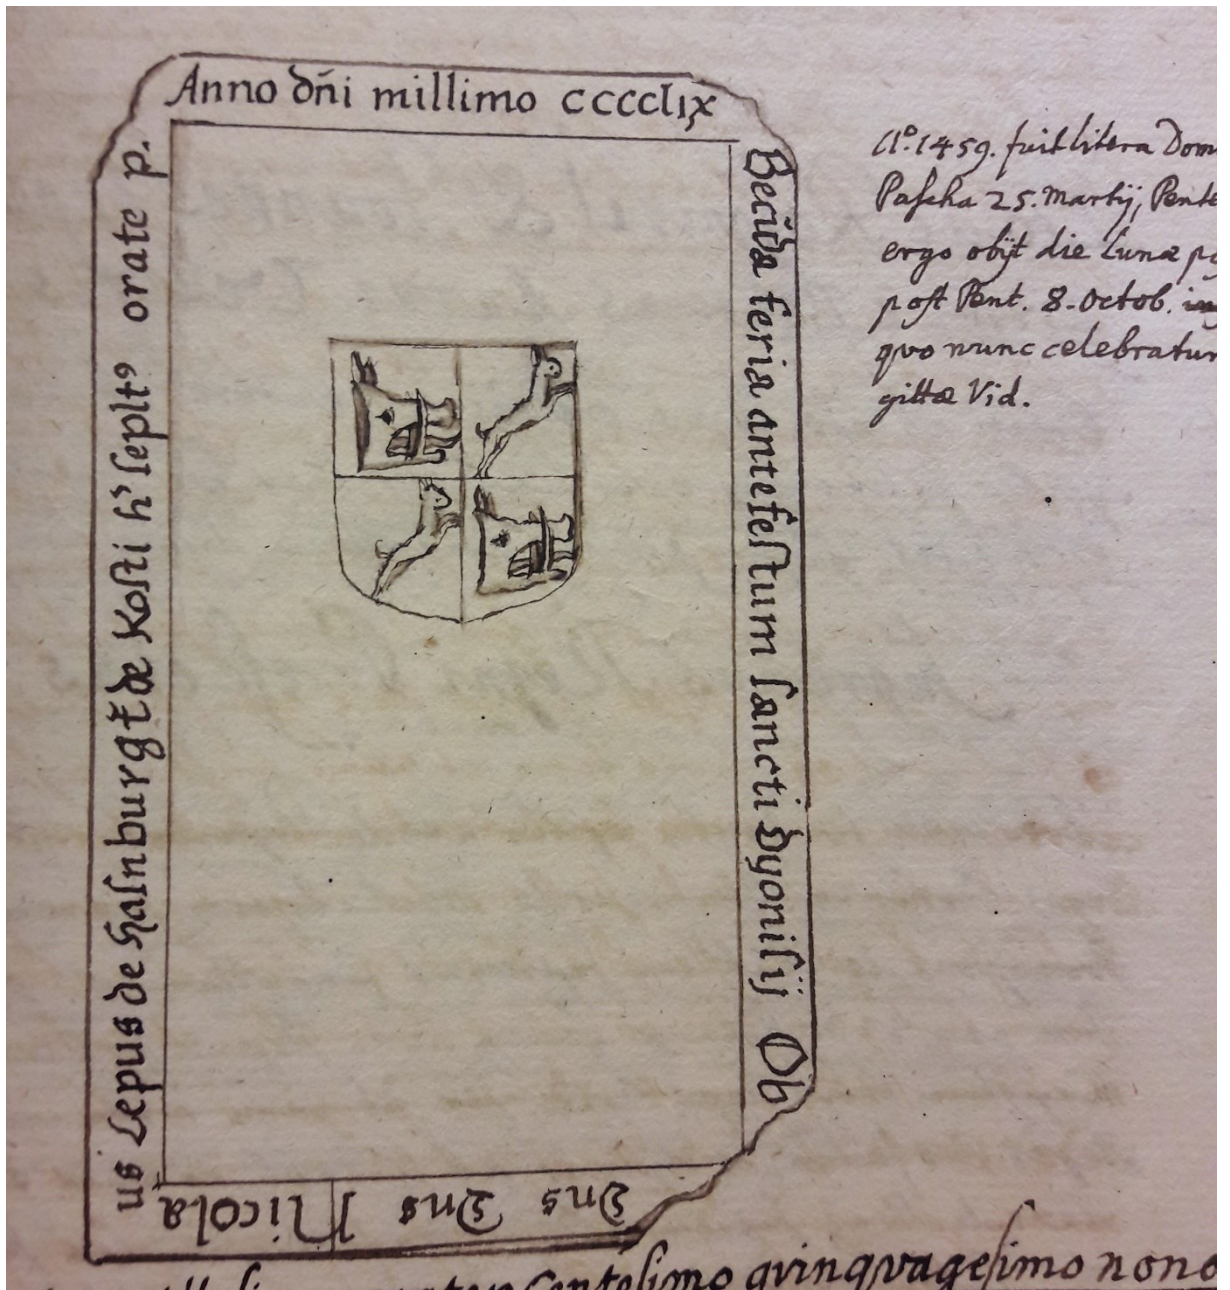 Anno dñi millimo cccclix
Secūda feria ante festum sancti dyonisij Ob
Dns Dns Nicola
us Lepus de Hasnburg de Kosti h' seplt9 orate p.
Aº. 1459. fuit litera Dom
Pascha 25. Martij, Pente
ergo obijt die Lunæ
post Pent. 8. Octob.
quo nunc celebratur
gittæ Vid.
quinquagesimo nono